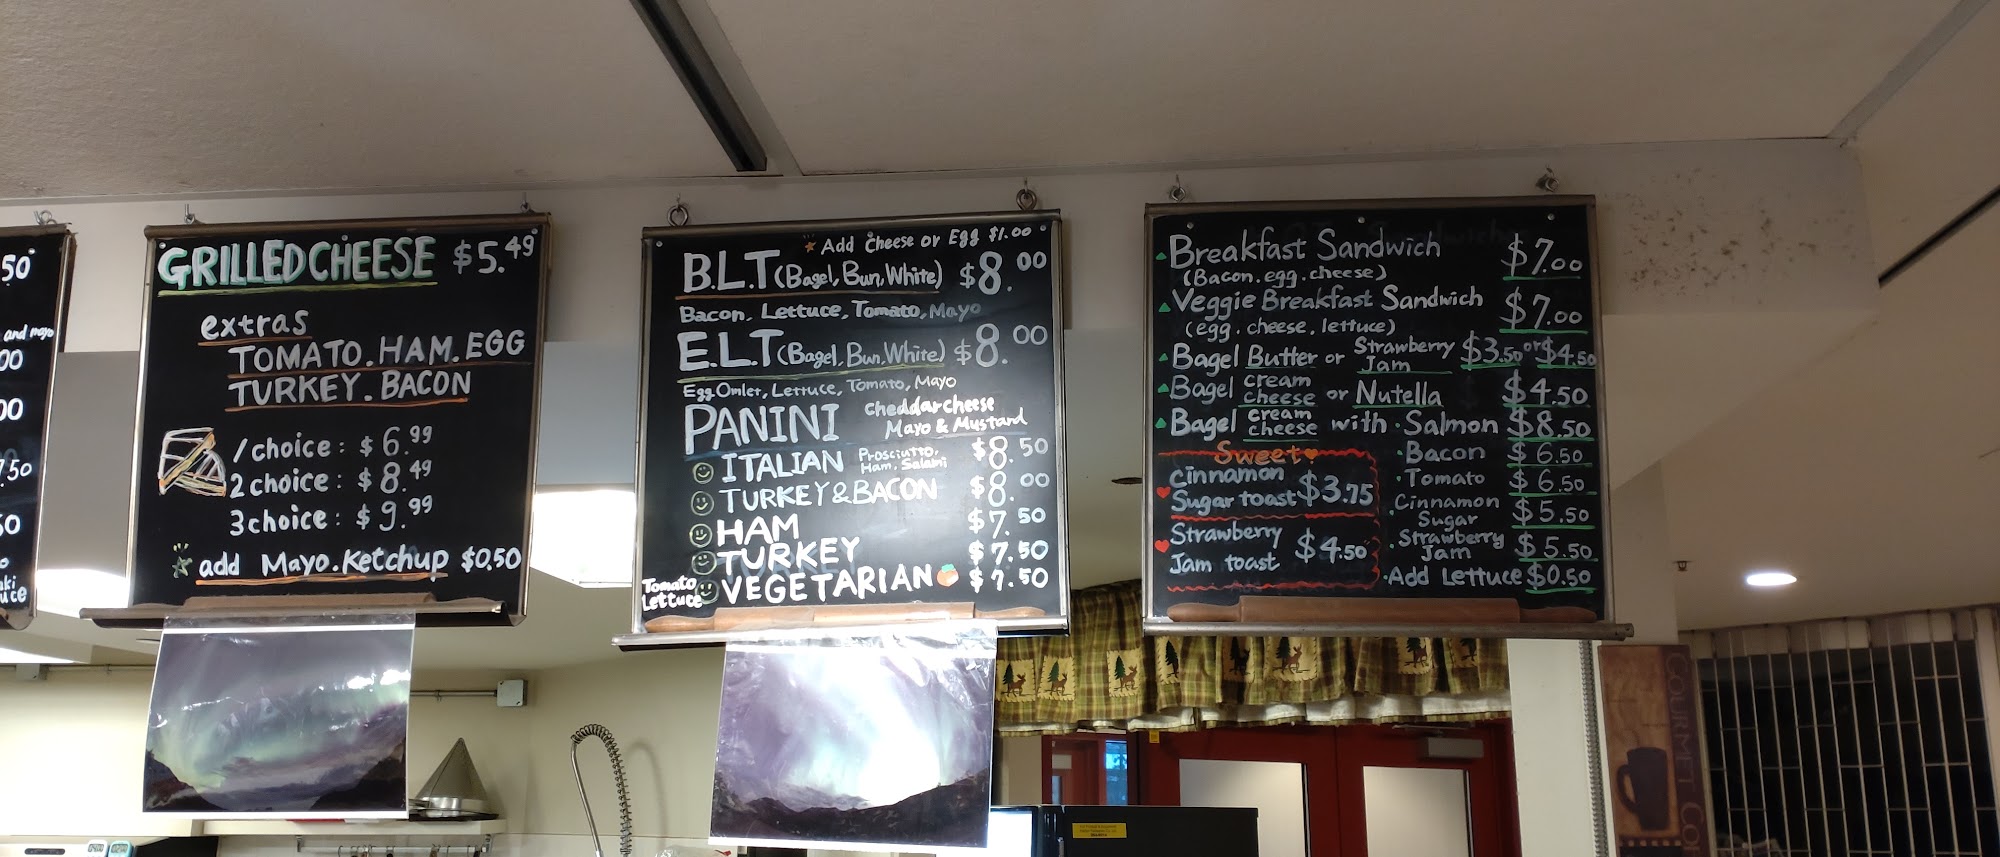 50
and mayo
00
00
7.50
50
uki
uce
GRILLED CHEESE $5.49
extras
TOMATO. HAM. EGG
TURKEY. BACON
1choice: $6.99
2choice: $8.49
3choice: $9.99
add Mayo. Ketchup $0.50
Add cheese or Egg $1.00
B.L.T (Bagel, Bun, White) $8.00
Bacon, Lettuce, Tomato, Mayo
E.L.T (Bagel, Bun, White) $8.00
Egg Omlet, Lettuce, Tomato, Mayo
PANINI cheddar cheese
Mayo & Mustard
ITALIAN Prosciutto, Ham, Salami $8.50
TURKEY & BACON $8.00
HAM $7.50
TURKEY $7.50
Tomato Lettuce VEGETARIAN $7.50
Breakfast Sandwich $7.00
(Bacon. egg. cheese)
Veggie Breakfast Sandwich $7.00
(egg. cheese, lettuce)
Bagel Butter or Strawberry Jam $3.50 or $4.50
Bagel cream cheese or Nutella $4.50
Bagel cream cheese with ·Salmon $8.50
·Bacon $6.50
·Tomato $6.50
·Cinnamon Sugar $5.50
·Strawberry Jam $5.50
·Add Lettuce $0.50
Sweet
Cinnamon
Sugar toast $3.75
Strawberry
Jam toast $4.50
GOURMET CO